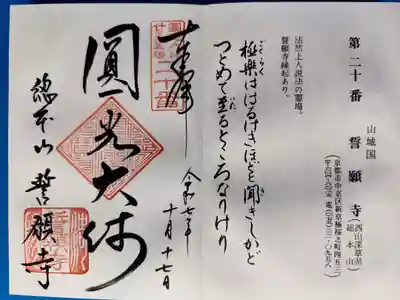 山城国
第二十番 誓願寺 (西山深草派 総本山)
(京都市中京区新京極桜之町四五三
法然上人説法の霊場。
誓願寺縁起あり。
極楽ははるけきほどと聞きしかど
つとめて至るところなりけり
奉拝
令和七年
十月十七日
二十番
圓光大師
総本山 誓願寺